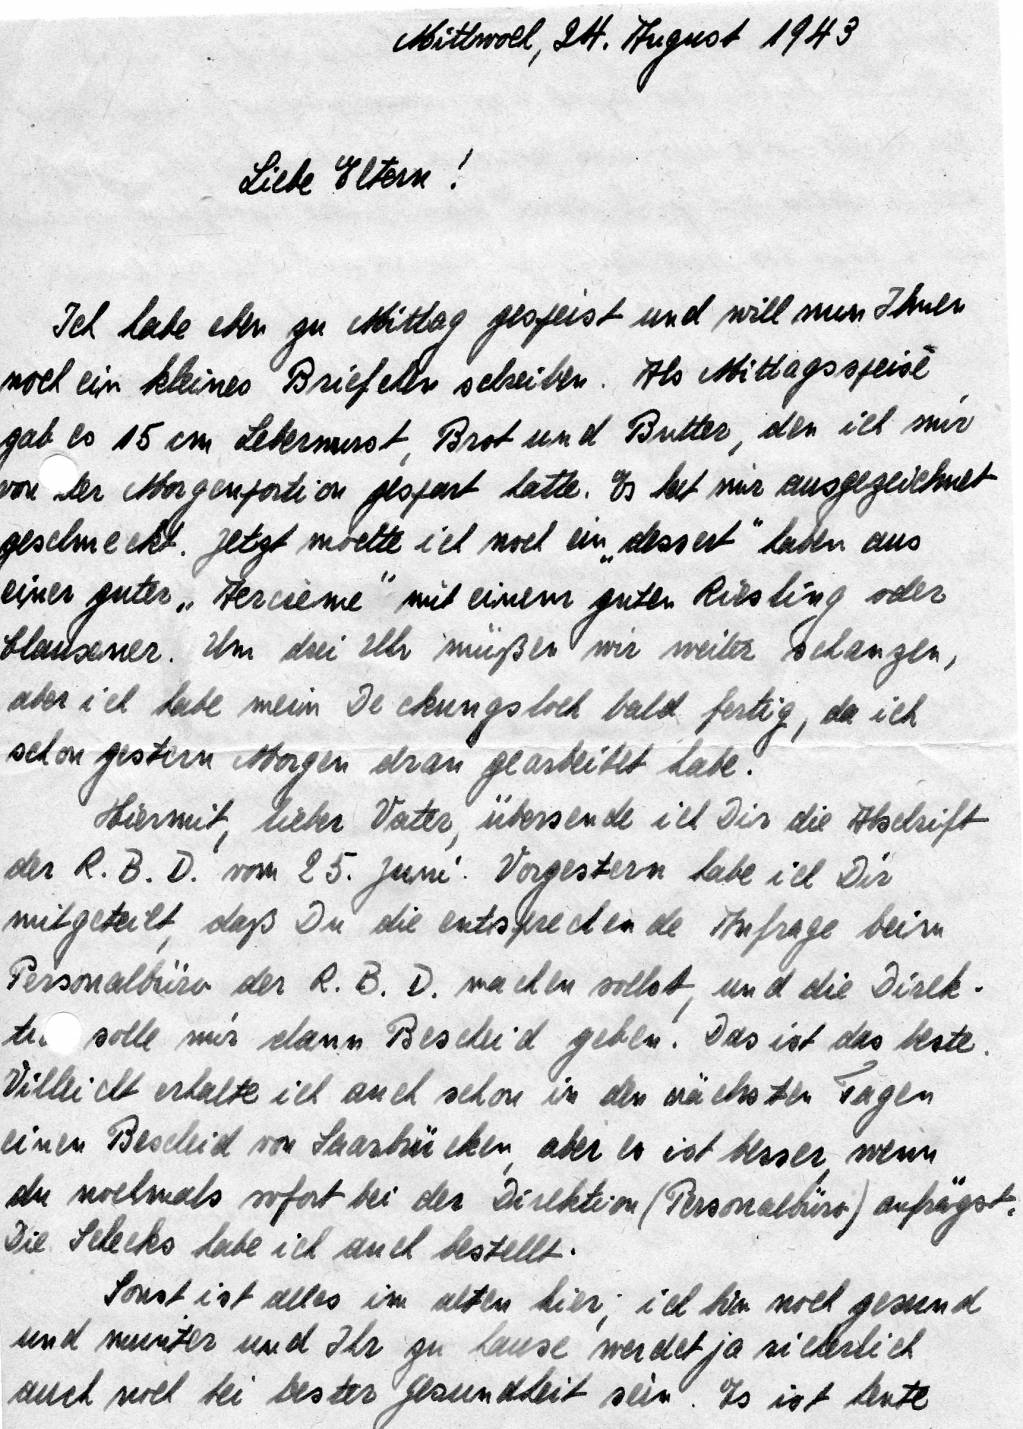 Mittwoch, 24. August 1943
Liebe Eltern!
Ich habe eben zu Mittag gespeist und will nun Ihnen
noch ein kleines Briefchen schreiben. Als Mittagsspeise
gab es 15 cm Leberwurst, Brot und Butter, den ich mir
von der Morgenportion gespart hatte. Es hat mir ausgezeichnet
geschmeckt. Jetzt möchte ich noch ein „dessert" haben aus
einer guter „ " mit einem guten Riesling oder
Clausener. Um drei Uhr müßen wir weiter schanzen,
aber ich habe mein Deckungsloch bald fertig, da ich
schon gestern Morgen dran gearbeitet habe.
Hiermit, lieber Vater, übersende ich Dir die Abschrift
der R. B. D. vom 25. Juni. Vorgestern habe ich Dir
mitgeteilt, daß Du die entsprechende Anfrage beim
Personalbüro der R. B. D. machen sollst, und die Direk-
solle mir dann Bescheid geben. Das ist das beste.
Villeicht erhalte ich auch schon in den nächsten Tagen
einen Bescheid von Saarbrücken, aber es ist besser, wenn
du nochmals sofort bei der Direktion (Personalbüro) anfrägst.
Die Schecks habe ich auch bestellt.
Sonst ist alles im alten hier; ich bin noch gesund
und munter und Ihr zu hause werdet ja sicherlich
auch noch bei bester Gesundheit sein. Es ist heute